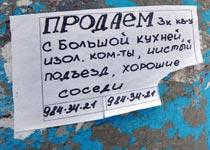 ПРОДАЕМ 3к кв-у
с Большой кухней,
изол. ком-ты, чистый
подъезд, хорошие
соседи
984-34-21 984-34-21